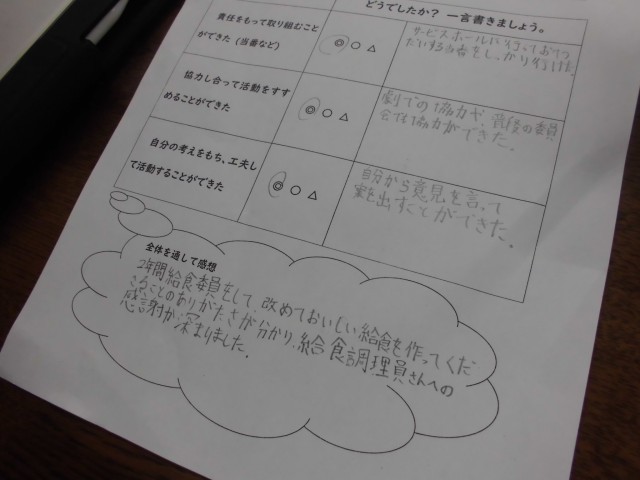 どうでしたか？ 一言書きましょう。
責任をもって取り組むこと
ができた（当番など）
◎ ○ △
サービスホールに行って
をしっかり行けた。
協力し合って活動をすす
めることができた
◎ ○ △
劇での協力や、最後の委員
会でも協力ができた。
自分の考えをもち、工夫し
て活動することができた
◎ ○ △
自分から意見を言って
案を出すことができた。
全体を通して感想
2年間給食委員をして、改めておいしい給食を作ってくだ
さることのありがたさが分かり、給食調理員さんへの
感謝が深まりました。